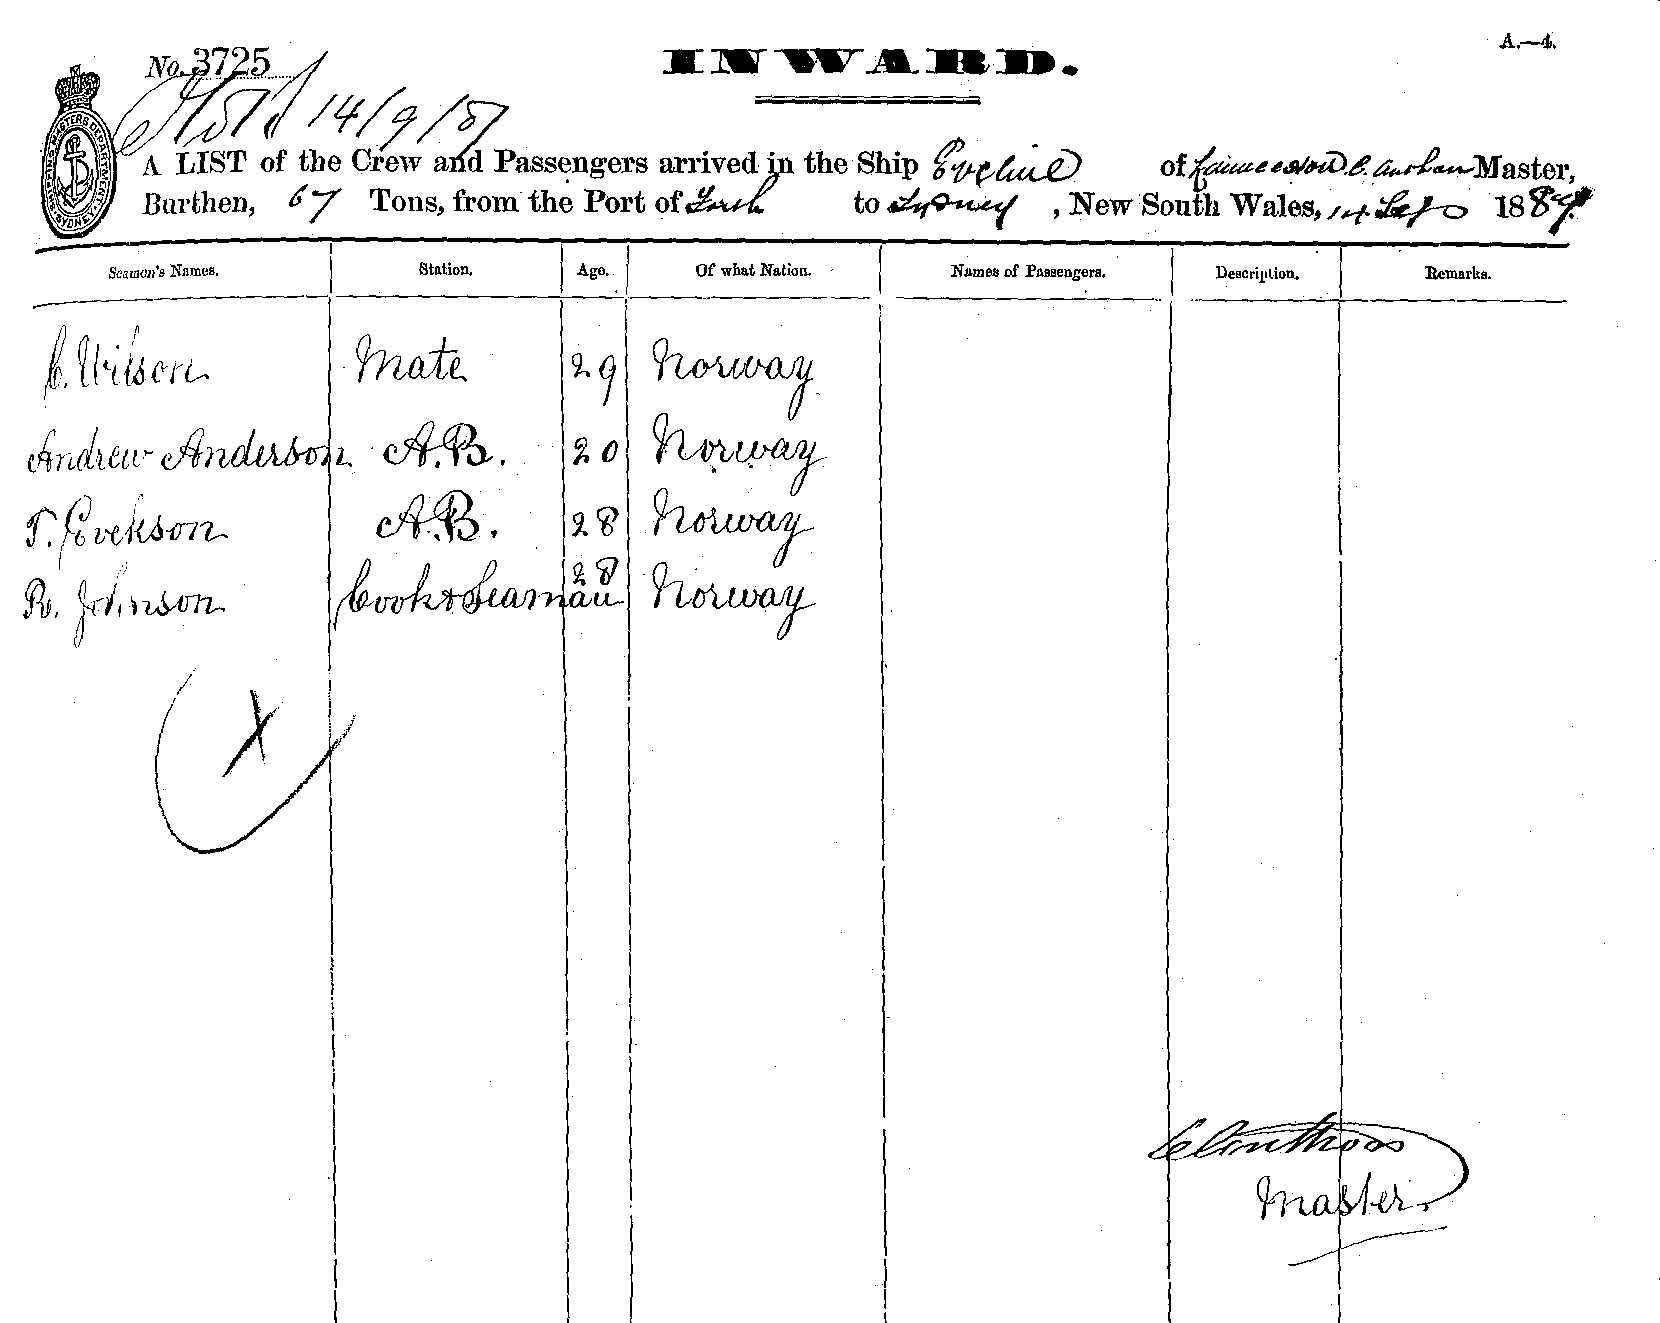 A.—4.
No. 3725
INWARD.
14/9/87
A LIST of the Crew and Passengers arrived in the Ship Eveline of Launceston C. Master,
Burthen, 67 Tons, from the Port of to Sydney, New South Wales, 14 Sep 1887
Seamen's Names. Station. Age. Of what Nation. Names of Passengers. Description. Remarks.
C. Wilson Mate 29 Norway
Andrew Anderson A.B. 20 Norway
T. Evekson A.B. 28 Norway
R. Johnson Cook & Seaman 28 Norway
X
Master